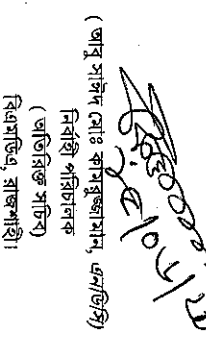 (আবু সাঈদ মোঃ কামরুজ্জামান, এনডিসি)
নির্বাহী পরিচালক
(অতিরিক্ত সচিব)
বিএমডিএ, রাজশাহী।